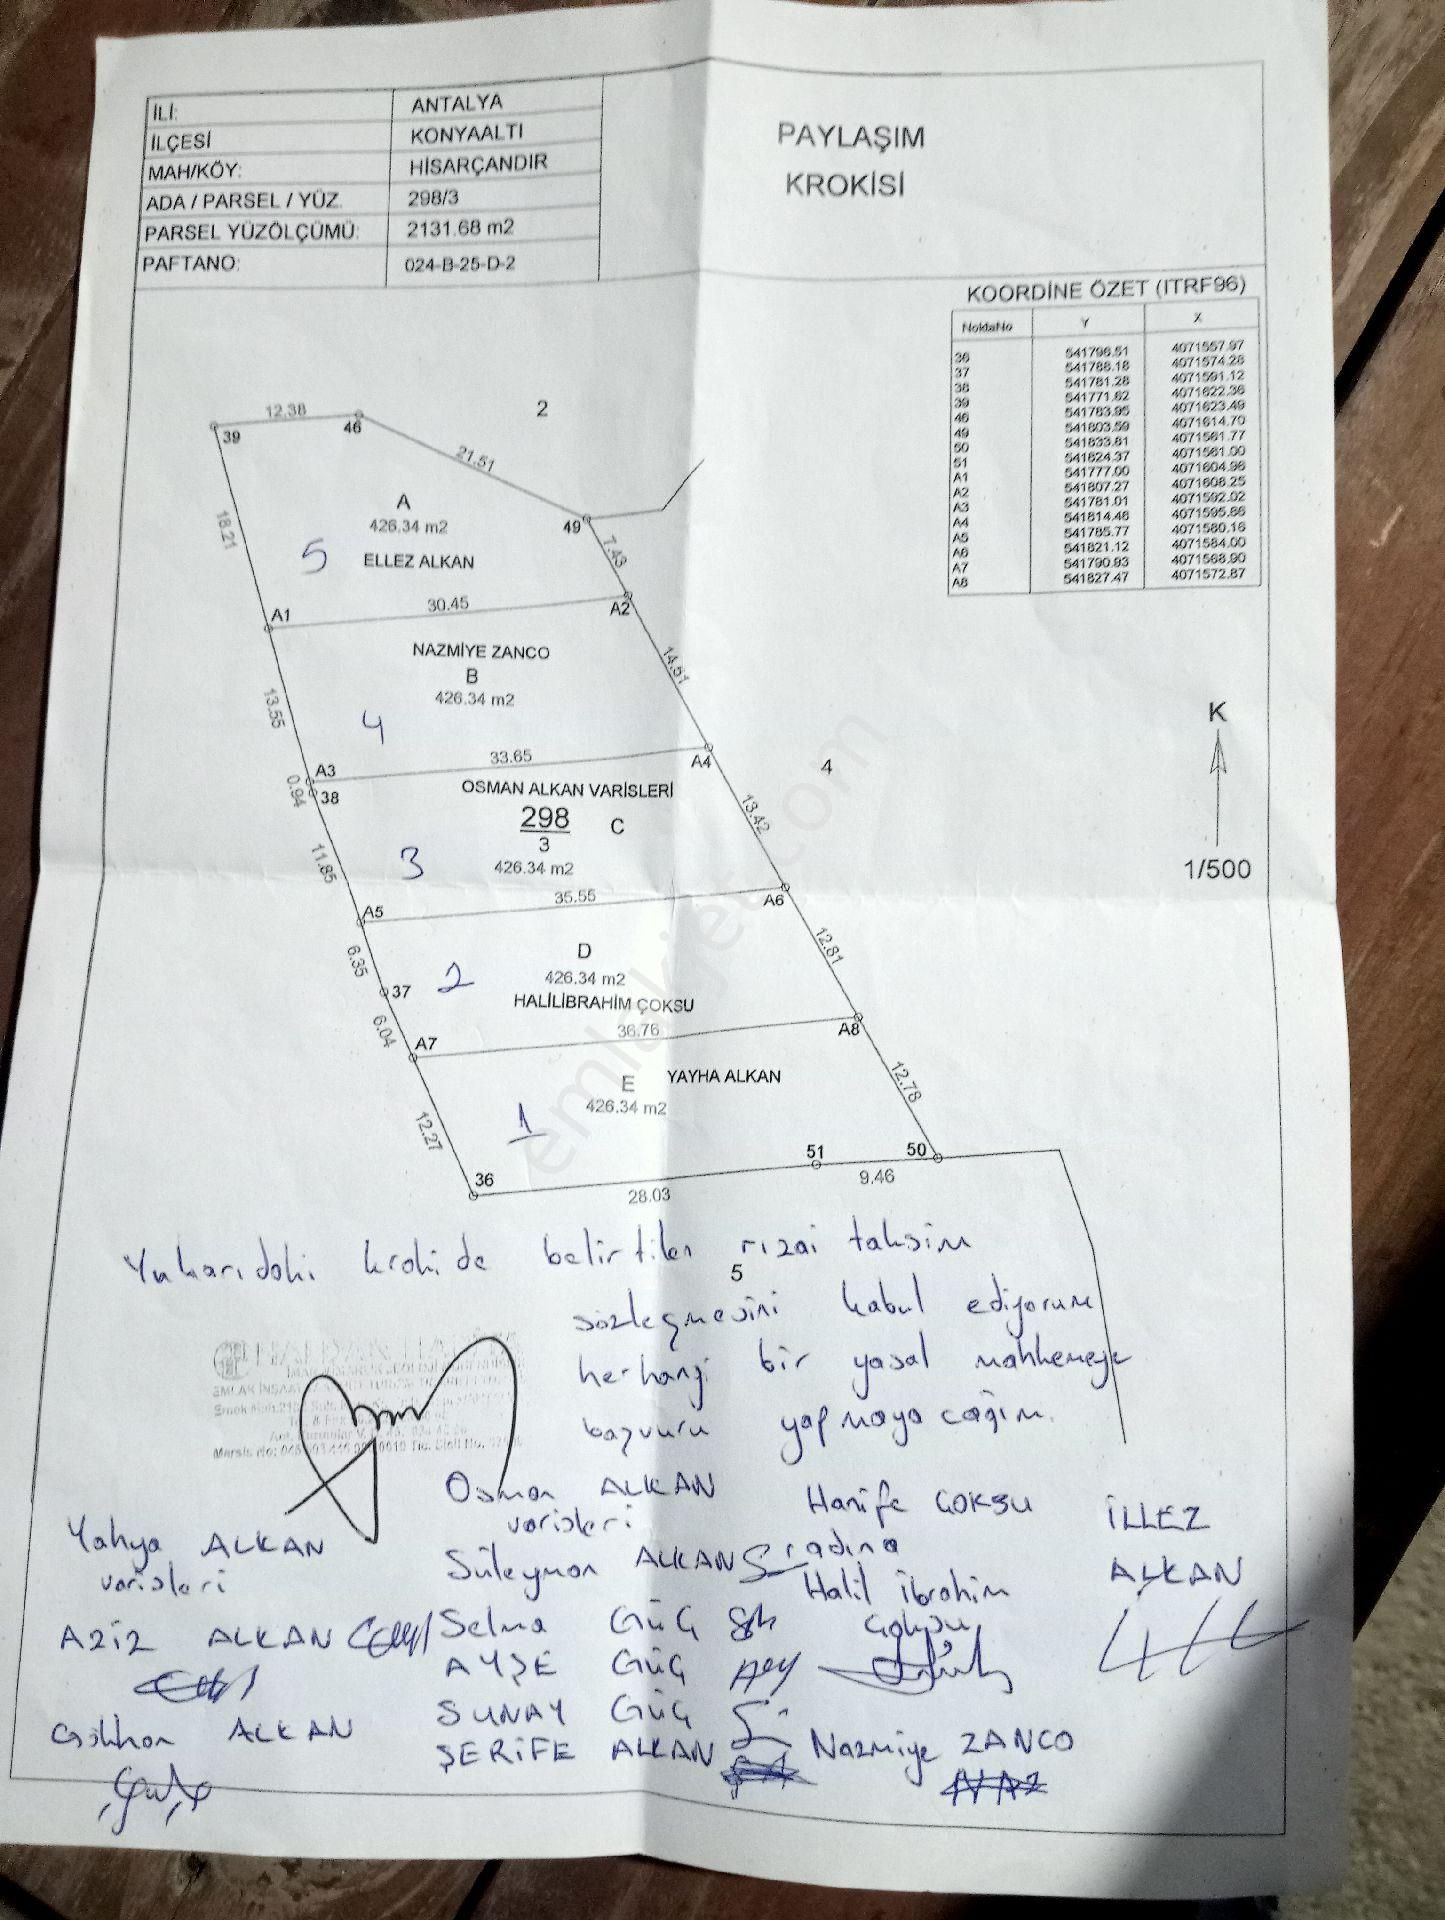 İLİ: ANTALYA
İLÇESİ KONYAALTI
MAH/KÖY: HİSARÇANDIR
ADA / PARSEL / YÜZ. 298/3
PARSEL YÜZÖLÇÜMÜ: 2131.68 m2
PAFTANO: 024-B-25-D-2
PAYLAŞIM
KROKİSİ
KOORDİNE ÖZET (ITRF96)
NoktaNo Y X
36 541796.51 4071557.97
37 541788.18 4071574.28
38 541781.28 4071591.12
39 541771.62 4071622.36
46 541783.95 4071623.49
49 541803.59 4071614.70
50 541833.81 4071561.77
51 541824.37 4071561.00
A1 541777.00 4071604.96
A2 541807.27 4071608.25
A3 541781.01 4071592.02
A4 541814.46 4071595.86
A5 541785.77 4071580.16
A6 541821.12 4071584.00
A7 541790.93 4071568.90
A8 541827.47 4071572.87
12.38
39
46
2
21.51
A
426.34 m2
18.21
5
ELLEZ ALKAN
49
7.43
A1
30.45
A2
NAZMİYE ZANCO
B
426.34 m2
14.51
13.55
4
33.65
A3
A4
0.94
38
OSMAN ALKAN VARİSLERİ
298
3
C
4
13.42
11.85
3
426.34 m2
35.55
A5
A6
K
1/500
D
426.34 m2
HALİLİBRAHİM ÇOKSU
12.81
6.35
2
37
6.04
36.76
A7
A8
E
YAYHA ALKAN
426.34 m2
12.78
12.27
1
36
51
50
28.03
9.46
Yukarıdaki krokide belirtilen rızai taksim
5
sözleşmesini kabul ediyorum
herhangi bir yasal mahkemeye
başvuru yapmayacağım.
Yahya ALKAN
varisleri
AZİZ ALKAN
Gökhan ALKAN
Osman ALKAN
varisleri
Süleyman ALKAN
Selma GÜÇ
AYŞE GÜÇ
SUNAY GÜÇ
ŞERİFE ALKAN
Hanife ÇOKSU
adına
Halil ibrahim
Çoksu
Nazmiye ZANCO
İLLEZ
ALKAN
emlakjet.com